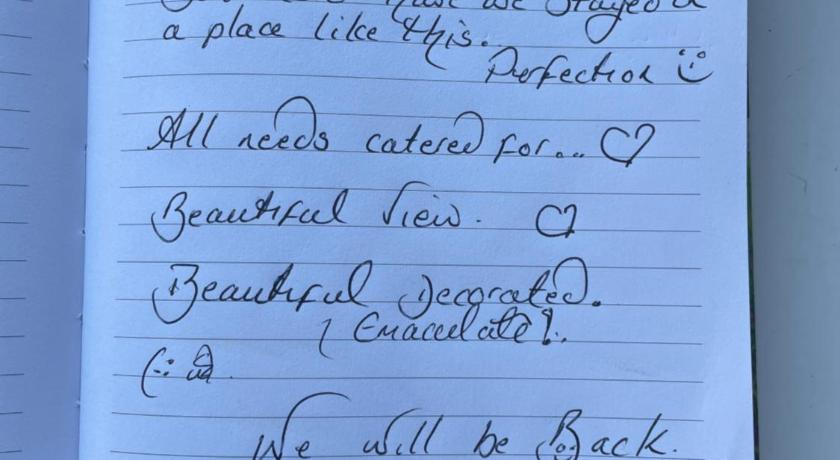 have we stayed
a place like this.
Perfection
All needs catered for...
Beautiful View.
Beautiful Decorated.
(Emaculate!.
We will be Back.